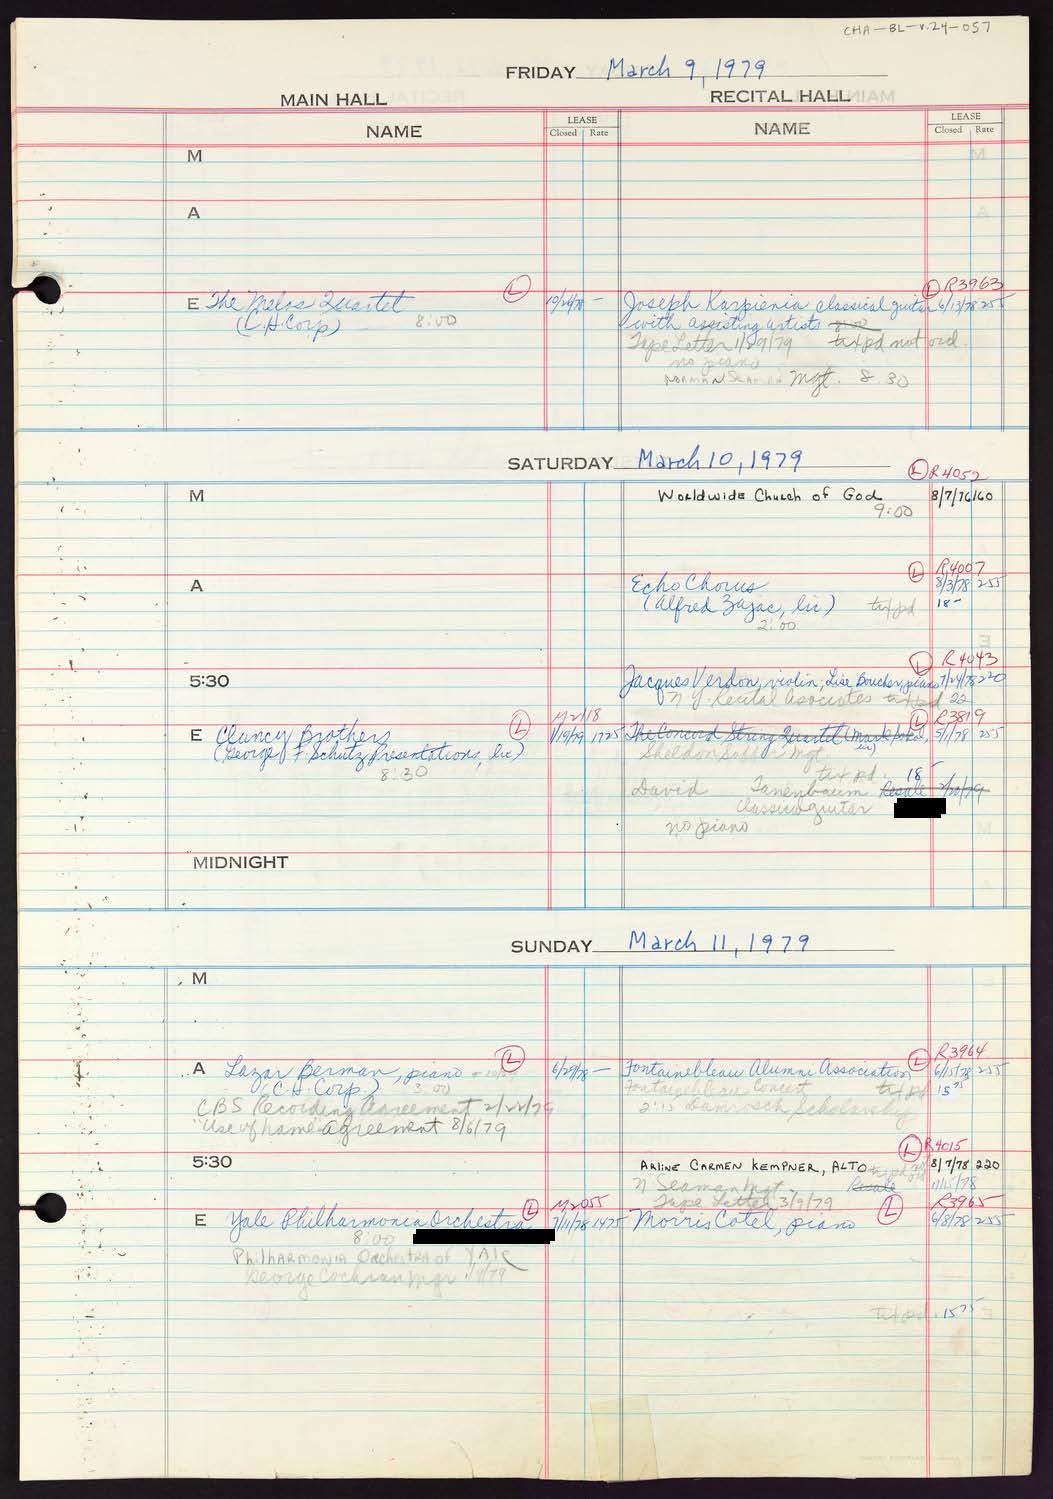 CHA-BL-v.24-057
FRIDAY March 9, 1979
MAIN HALL
RECITAL HALL
NAME
LEASE
Closed Rate
NAME
LEASE
Closed Rate
M
A
R3963
E The Melos Quartet L
Joseph Karpienia classical guitar L 6/13/78 255
(C.H. Corp) 8:00
with assisting artists 8:00
Tape Letter
tax pd not ord.
no piano
Norman Seaman Mgt. 8:30
SATURDAY March 10, 1979
L R4052
M
Worldwide Church of God 160
9:00
L R4007
A
Echo Chorus 8/3/78 255
(Alfred Zajac, lic) tax pd 18-
2:00
L R4043
5:30
Jacques Verdon, violin; Lise Boucher, piano 7/24/78 220
N Y Recital Associates tax pd 22
M2118
L R3819
E Clancy Brothers L 1/19/79 1725
The Concord String Quartet 5/1/78 255
(George F. Schutz Presentations, lic)
8:30
Sheldon Soffer Mgt
tax pd. 18-
David Tanenbaum Resale
classical guitar
no piano
MIDNIGHT
SUNDAY March 11, 1979
M
R3964
A Lazar Berman, piano L 6/29/78 —
Fontainebleau Alumni Association L 6/15/78 255
(C.H. Corp.) 3:00
Fontainebleau Concert tax pd 15 75
CBS Recording Agreement 2/22/79
Damrosch Scholarship
"Use of name" agreement 8/6/79
L R4015
5:30
ARLINE CARMEN KEMPNER, ALTO tax pd not ord 8/7/78 220
N Seaman Mgt. Resale 11/15/78
Tape Letter 3/9/79
M2055
R3965
E Yale Philharmonia Orchestra L 7/11/78 1475
Morris Cotel, piano L 6/8/78 255
8:00
Philharmonia Orchestra of Yale
George Cochran mgr
tax pd. 15 75